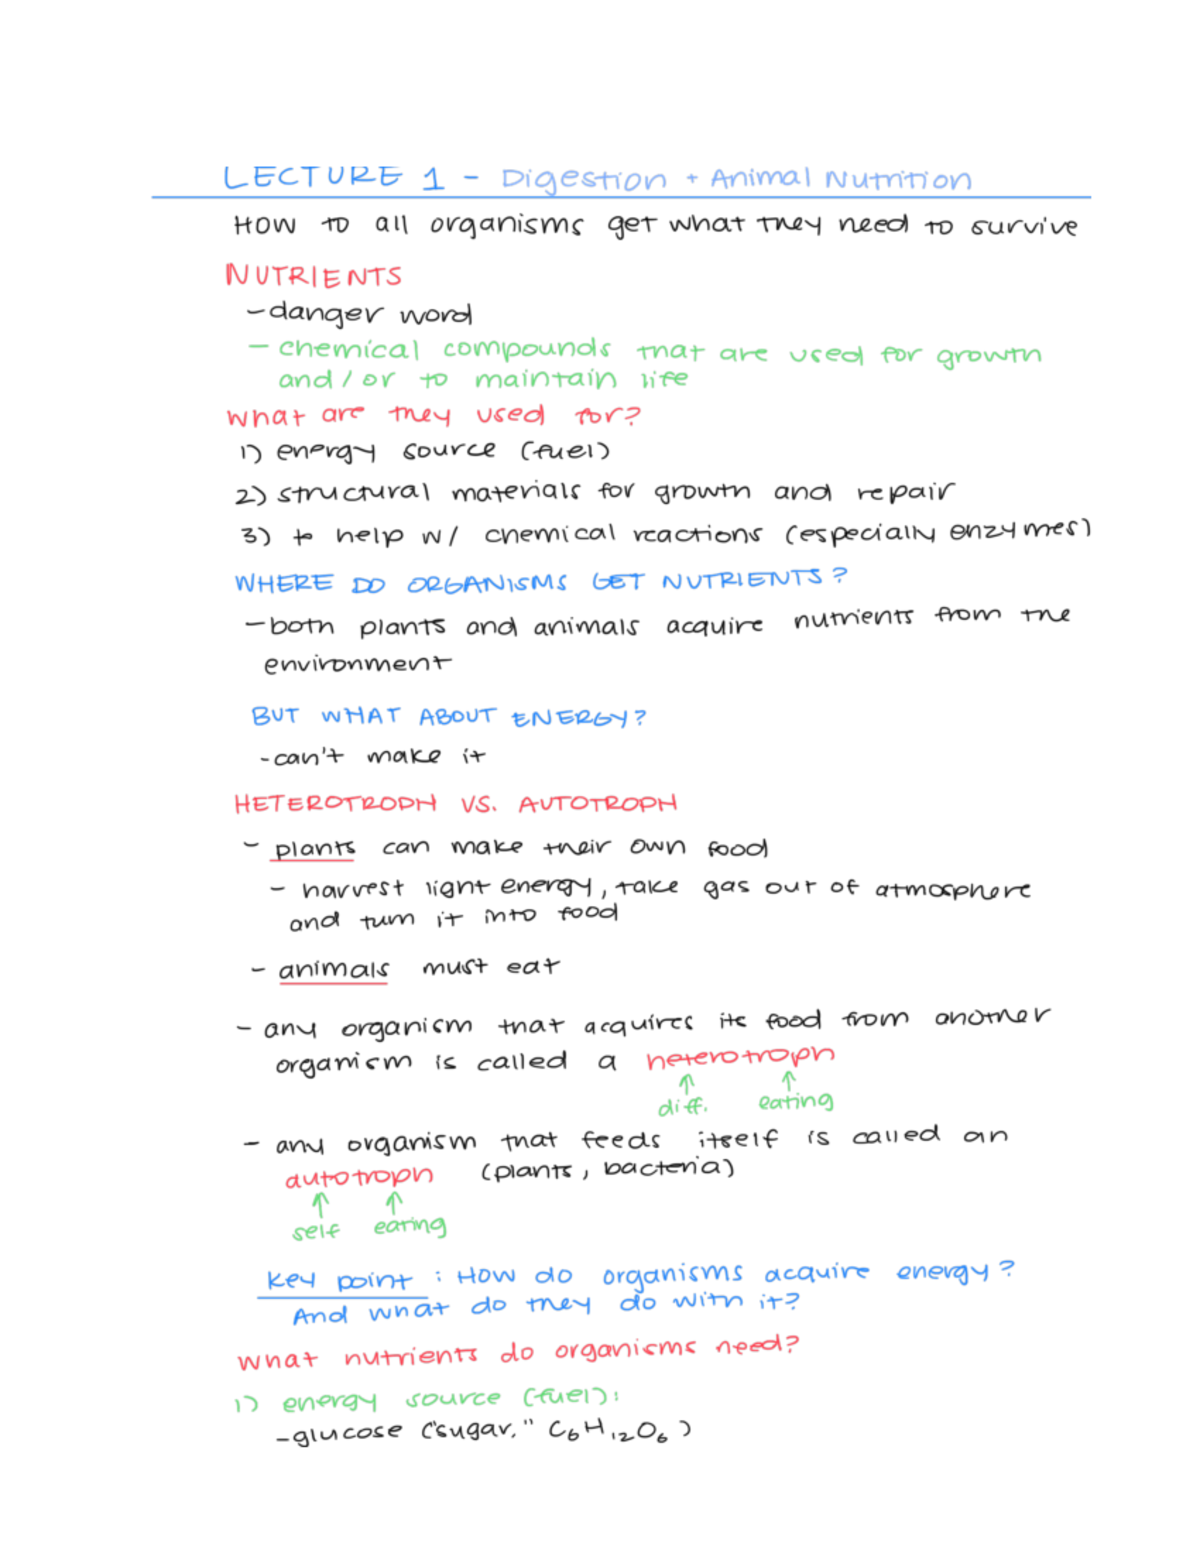 LECTURE 1 - Digestion + Animal Nutrition
HOW to all organisms get what they need to survive
NUTRIENTS
- danger word
- chemical compounds that are used for growth
and/or to maintain life
what are they used for?
1) energy source (fuel)
2) structural materials for growth and repair
3) to help w/ chemical reactions (especially enzymes)
WHERE DO ORGANISMS GET NUTRIENTS?
- both plants and animals acquire nutrients from the
environment
BUT WHAT ABOUT ENERGY?
- can't make it
HETEROTROPH VS. AUTOTROPH
- plants can make their own food
- harvest light energy, take gas out of atmosphere
and turn it into food
- animals must eat
- any organism that acquires its food from another
organism is called a heterotroph
↑ ↑
diff. eating
- any organism that feeds itself is called an
autotroph (plants, bacteria)
↑ ↑
self eating
key point: How do organisms acquire energy?
And what do they do with it?
what nutrients do organisms need?
1) energy source (fuel):
- glucose ("sugar," C₆H₁₂O₆)